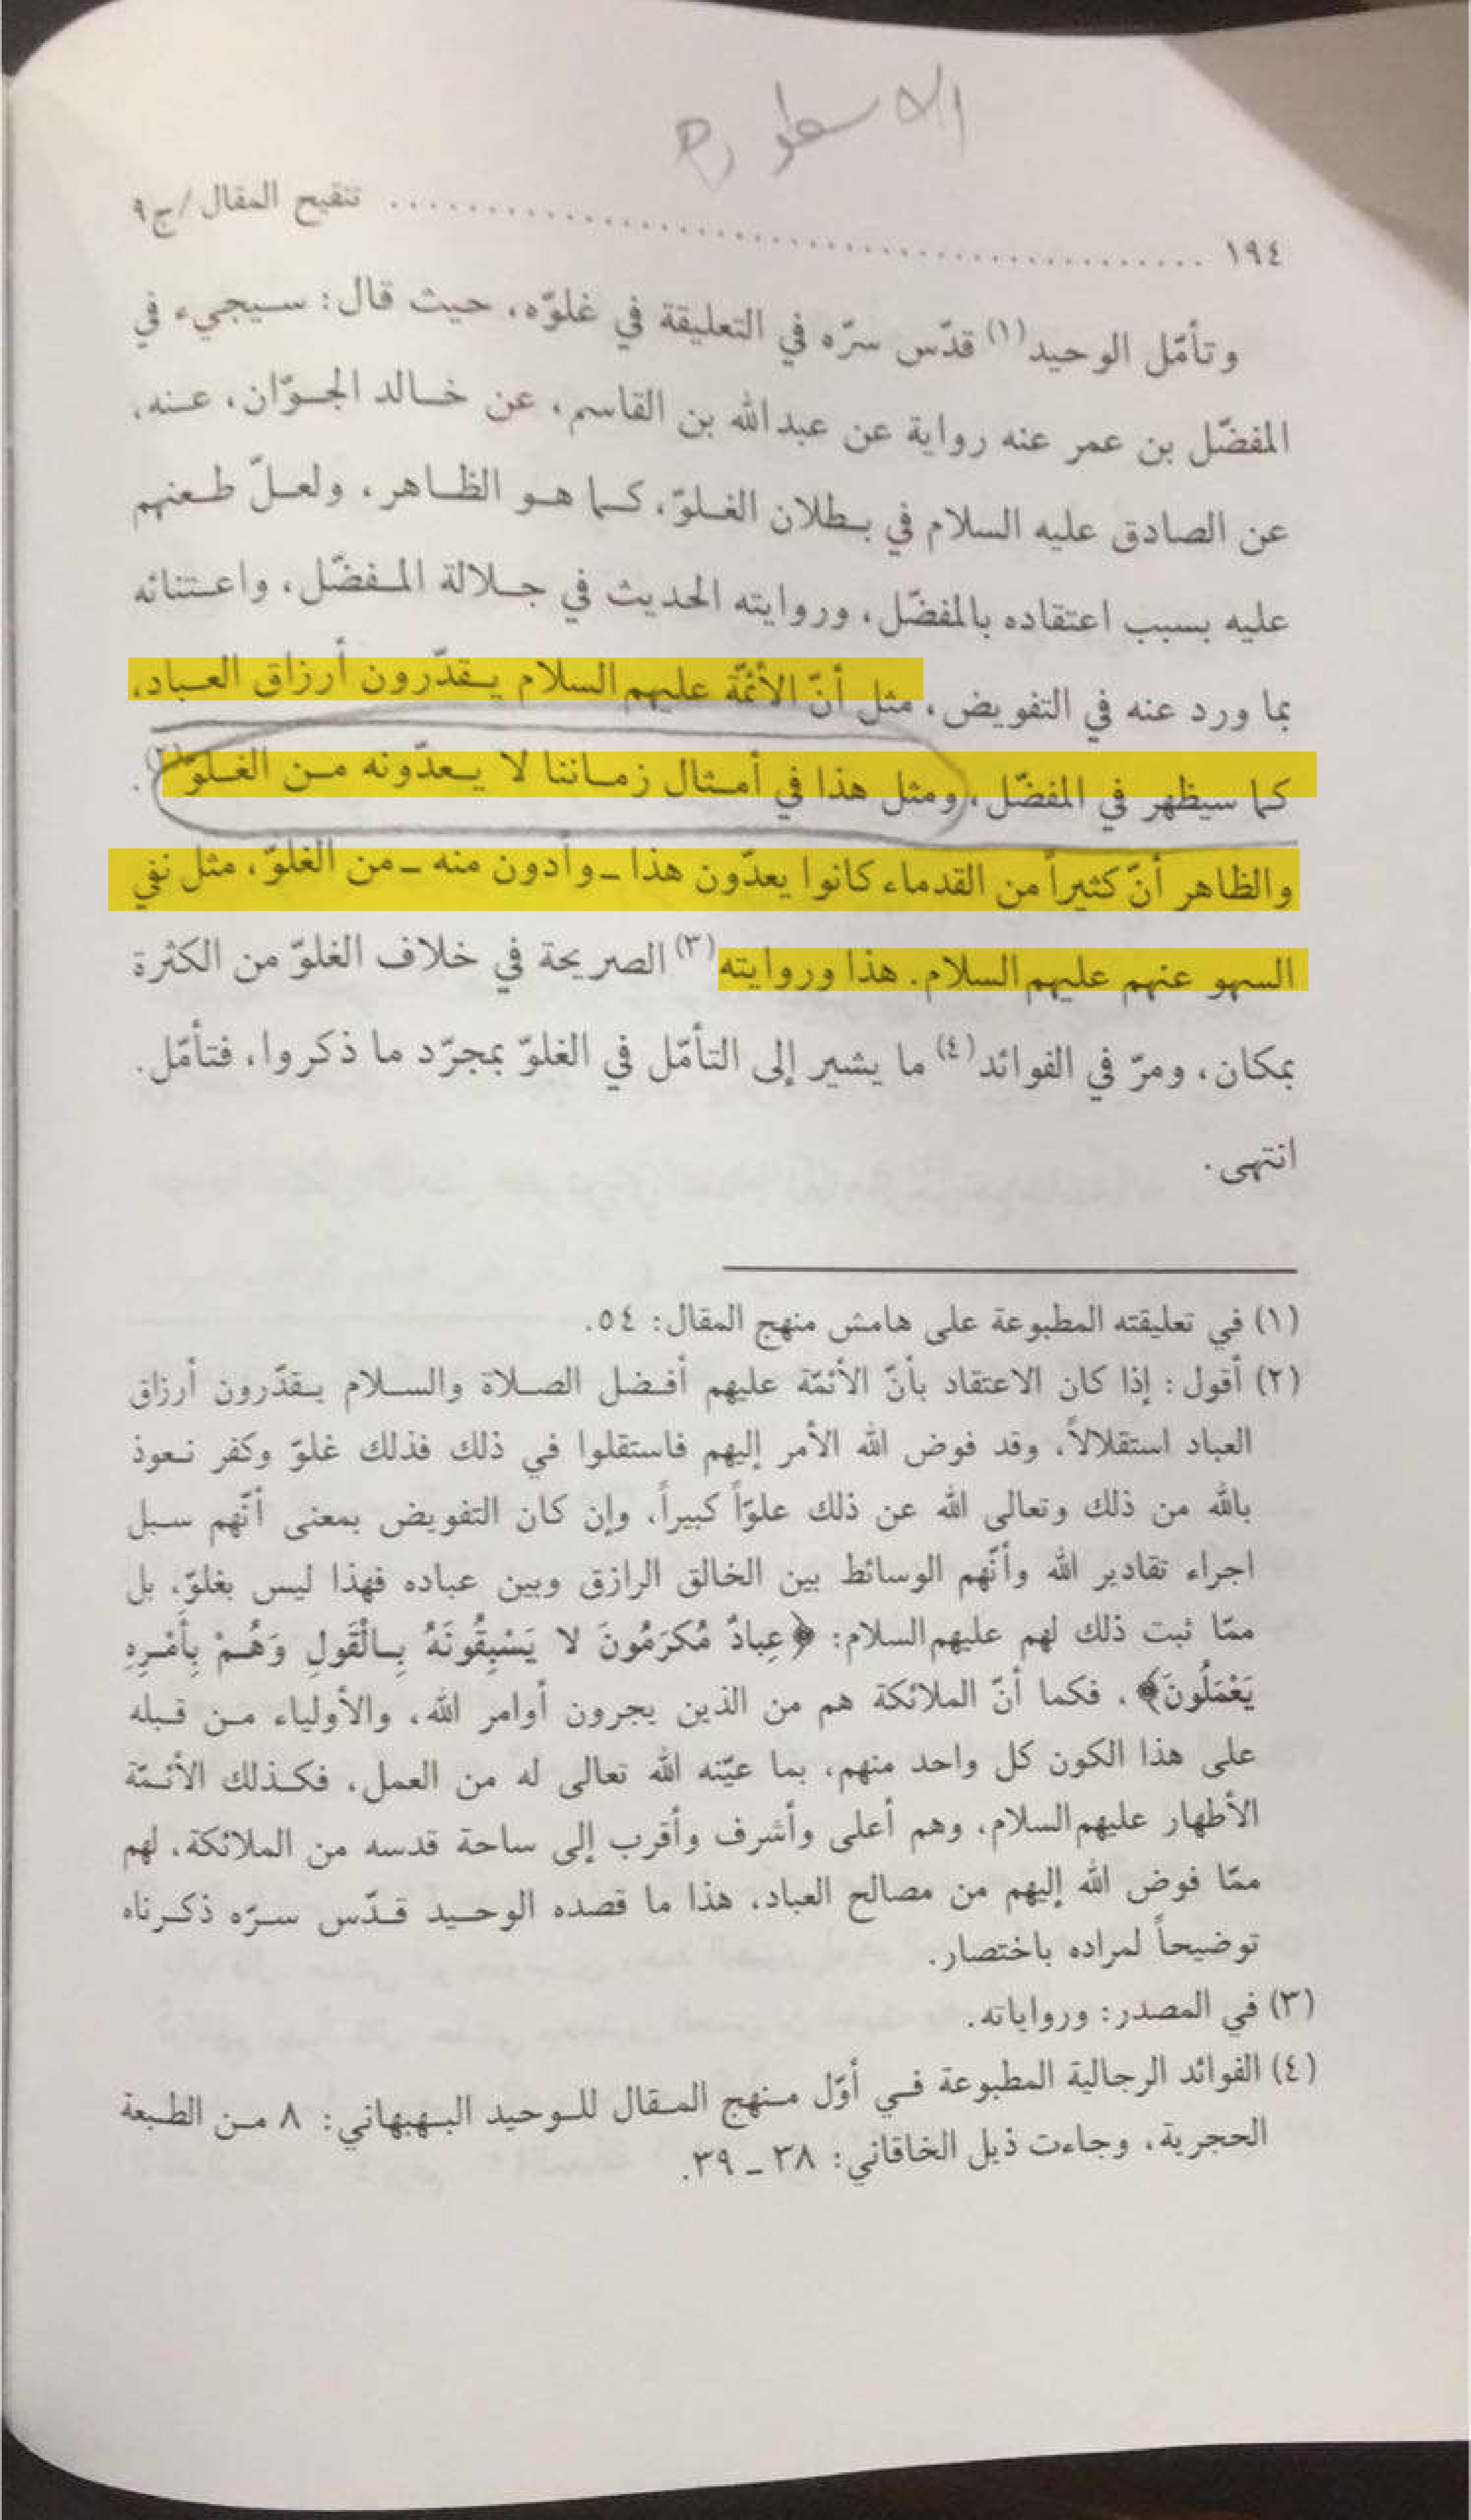 الاسطوره
١٩٤ ........................................ تنقيح المقال/ج٩
وتأمّل الوحيد(١) قدّس سرّه في التعليقة في غلوّه، حيث قال: سيجيء في
المفضّل بن عمر عنه رواية عن عبدالله بن القاسم، عن خالد الجوّان، عنه،
عن الصادق عليه السلام في بطلان الغلوّ، كما هو الظاهر، ولعلّ طعنهم
عليه بسبب اعتقاده بالمفضّل، وروايته الحديث في جلالة المفضّل، واعتنائه
بما ورد عنه في التفويض، مثل أنّ الأئمّة عليهم السلام يقدّرون أرزاق العباد،
كما سيظهر في المفضّل، ومثل هذا في أمثال زماننا لا يعدّونه من الغلوّ(٢).
والظاهر أنّ كثيراً من القدماء كانوا يعدّون هذا ـ وأدون منه ـ من الغلوّ، مثل نفي
السهو عنهم عليهم السلام. هذا وروايته(٣) الصريحة في خلاف الغلوّ من الكثرة
بمكان، ومرّ في الفوائد(٤) ما يشير إلى التأمّل في الغلوّ بمجرّد ما ذكروا، فتأمّل.
انتهى.
(١) في تعليقته المطبوعة على هامش منهج المقال: ٥٤.
(٢) أقول: إذا كان الاعتقاد بأنّ الأئمّة عليهم أفضل الصلاة والسلام يقدّرون أرزاق
العباد استقلالاً، وقد فوض الله الأمر إليهم فاستقلوا في ذلك فذلك غلوّ وكفر نعوذ
بالله من ذلك وتعالى الله عن ذلك علوّاً كبيراً، وإن كان التفويض بمعنى أنّهم سبل
اجراء تقادير الله وأنّهم الوسائط بين الخالق الرازق وبين عباده فهذا ليس بغلوّ، بل
ممّا ثبت ذلك لهم عليهم السلام: ﴿عِبادٌ مُكرَمُونَ لا يَسْبِقُونَهُ بِالْقَولِ وَهُمْ بِأَمْرِهِ
يَعْمَلُونَ﴾، فكما أنّ الملائكة هم من الذين يجرون أوامر الله، والأولياء من قبله
على هذا الكون كل واحد منهم، بما عيّنه الله تعالى له من العمل، فكذلك الأئمّة
الأطهار عليهم السلام، وهم أعلى وأشرف وأقرب إلى ساحة قدسه من الملائكة، لهم
ممّا فوض الله إليهم من مصالح العباد، هذا ما قصده الوحيد قدّس سرّه ذكرناه
توضيحاً لمراده باختصار.
(٣) في المصدر: ورواياته.
(٤) الفوائد الرجالية المطبوعة في أوّل منهج المقال للوحيد البهبهاني: ٨ من الطبعة
الحجرية، وجاءت ذيل الخاقاني: ٣٨ ـ ٣٩.